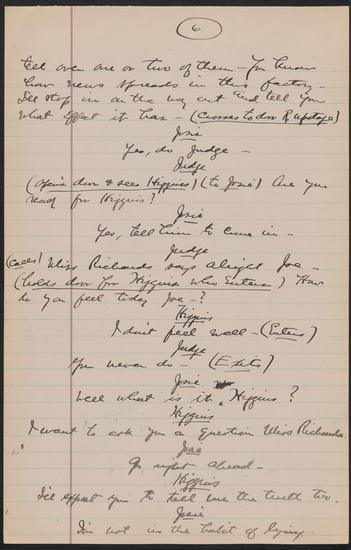 6
tell over one or two of them - You know
how news spreads in this factory -
I'll stop in on the way out and tell you
what effect it has - (Crosses to door R upstage)
Josie
Yes, do Judge -
Judge
(Opens door & sees Higgins) (to Josie) Are you
ready for Higgins?
Josie
Yes, tell him to come in -
Judge
(calls) Miss Richards says alright Joe -
(holds door for Higgins who enters) How
do you feel today Joe - ?
Higgins
I don't feel well - (Enters)
Judge
You never do - (Exits)
Josie
Well what is it, Higgins?
Higgins
I want to ask you a question Miss Richards.
Josie
Go right ahead -
Higgins
I'll expect you to tell me the truth too.
Josie
I'm not in the habit of lying.